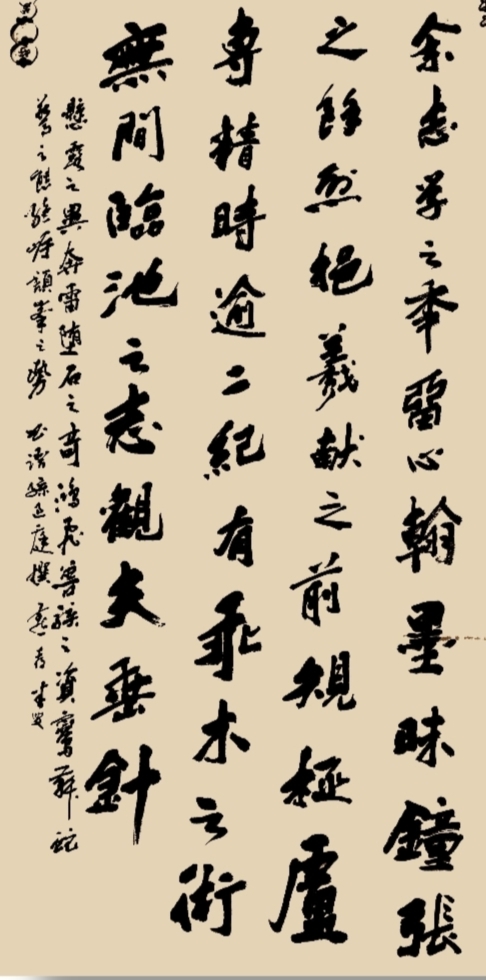 余志学之年留心翰墨昧鐘張
之餘烈挹羲献之前規極盧
專精時逾二紀有乖木之術
無間臨池之志觀夫垂針
懸露之異奔雷墮石之奇鴻飛獸駭之資鸞舞蛇
驚之態絶岸頹峯之勢 书譜孫过庭撰